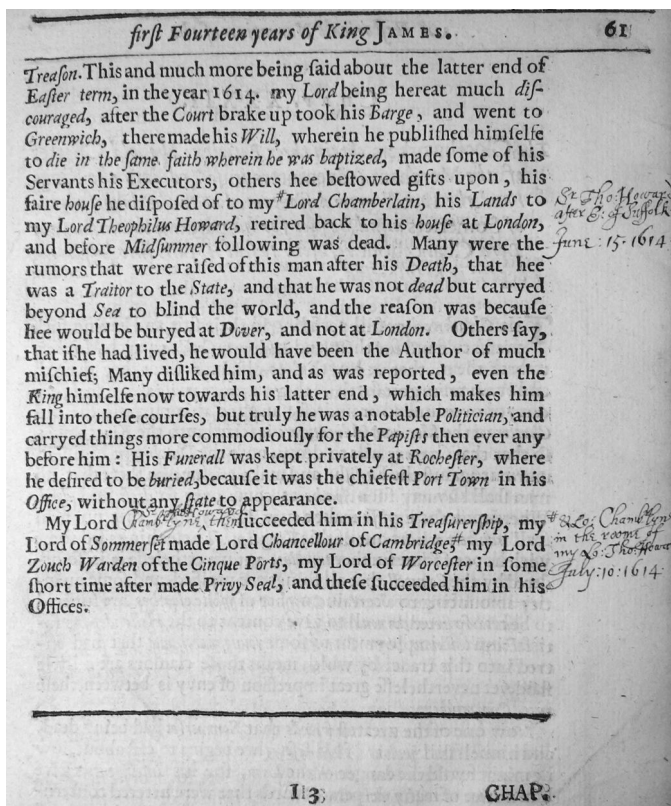 first Fourteen years of King JAMES. 61
Treason. This and much more being said about the latter end of
Easter term, in the year 1614. my Lord being hereat much dis-
couraged, after the Court brake up took his Barge, and went to
Greenwich, there made his Will, wherein he published himselfe
to die in the same faith wherein he was baptized, made some of his
Servants his Executors, others hee bestowed gifts upon, his
faire house he disposed of to my # Lord Chamberlain, his Lands to
my Lord Theophilus Howard, retired back to his house at London,
and before Midsummer following was dead. Many were the
rumors that were raised of this man after his Death, that hee
was a Traitor to the State, and that he was not dead but carryed
beyond Sea to blind the world, and the reason was because
hee would be buryed at Dover, and not at London. Others say,
that if he had lived, he would have been the Author of much
mischief; Many disliked him, and as was reported, even the
King himselfe now towards his latter end, which makes him
fall into these courses, but truly he was a notable Politician, and
carryed things more commodiously for the Papists then ever any
before him: His Funerall was kept privately at Rochester, where
he desired to be buried, because it was the chiefest Port Town in his
Office, without any state to appearance.
My Lord Chamberlyne, then succeeded him in his Treasurership, my
Lord of Sommerset made Lord Chancellour of Cambridge, # my Lord
Zouch Warden of the Cinque Ports, my Lord of Worcester in some
short time after made Privy Seal, and these succeeded him in his
Offices.
Sr. Tho: Howard
after E: of Suffolk
June: 15. 1614
# & Lo: Chamberlyn
in the roome of
my Lo: Tho: Howard
July: 10: 1614
I 3 CHAP.